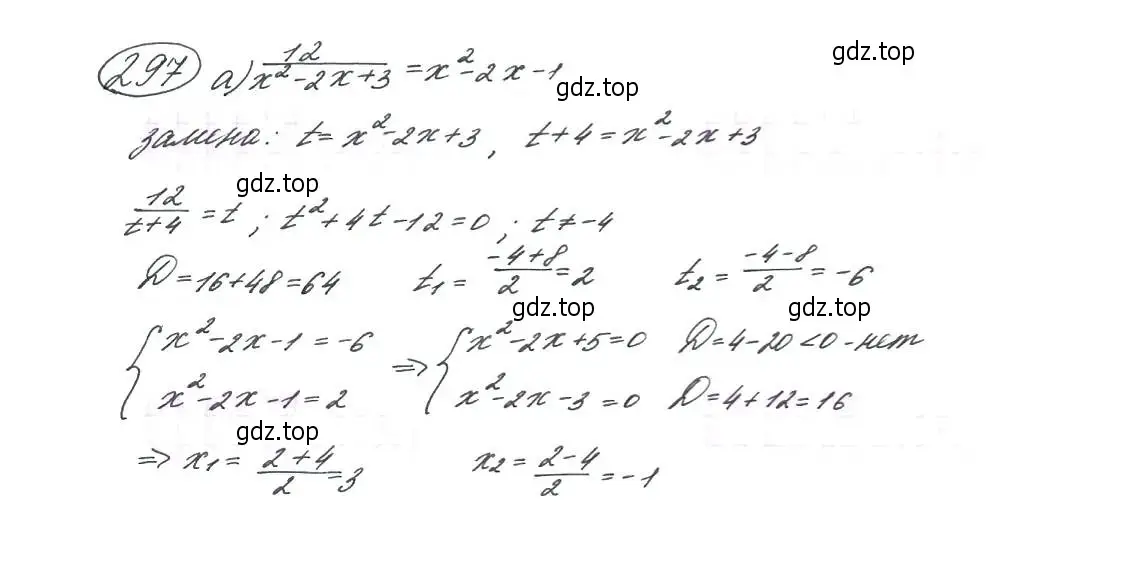 gdz.top
297 а) 12/(x²-2x+3) = x²-2x-1
gdz.top
замена: t = x²-2x+3, t+4 = x²-2x+3
gdz.top
12/(t+4) = t; t²+4t-12=0; t≠-4
D=16+48=64 t₁ = (-4+8)/2 = 2 t₂ = (-4-8)/2 = -6
gdz.top gdz.top
{ x²-2x-1=-6 => { x²-2x+5=0 D=4-20<0-нет
x²-2x-1=2 x²-2x-3=0 D=4+12=16
gdz.top
=> x₁ = (2+4)/2 = 3 x₂ = (2-4)/2 = -1